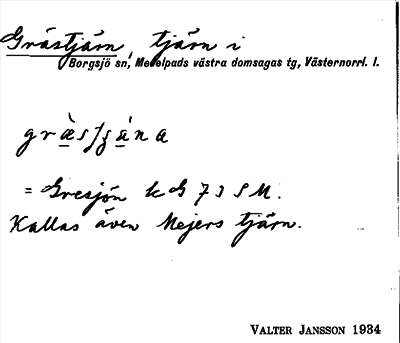 Grästjärn, tjärn i
Borgsjö sn, Medelpads västra domsagas tg, Västernorrl. l.
= Gresjön kG 73 SM.
Kallas även Mejers tjärn.
VALTER JANSSON 1934